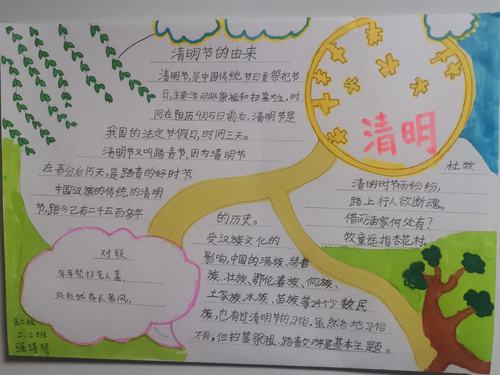 清明节的由来
清明节,是中国传统节日重祭祀节
日,主要活动以祭祖和扫墓为主,时
间在阳历4月5日前右,清明节是
我国的法定节假日,时间三天。
清明节又叫踏青节,因为清明节
在春分后15天,是踏青的好时节
中国汉族的传统的清明
节,距今已有二千五百多年
的历史。
受汉族文化的
影响,中国的满族、赫哲
族、壮族、鄂伦春族、侗族、
土家族、水族、苗族等24个少数民
族,也有过清明节的习俗,虽然各地习俗
不同,但扫墓祭祖、踏青交游是基本主题。
清明
杜牧
清明时节雨纷纷,
路上行人欲断魂。
借问酒家何处有?
牧童遥指杏花村。
对联
年年祭扫先人墓
处处 春长 风。
二、三班
强诗琴